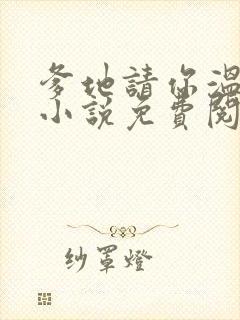 爹地請你溫
小說免費閱
纱罩燈